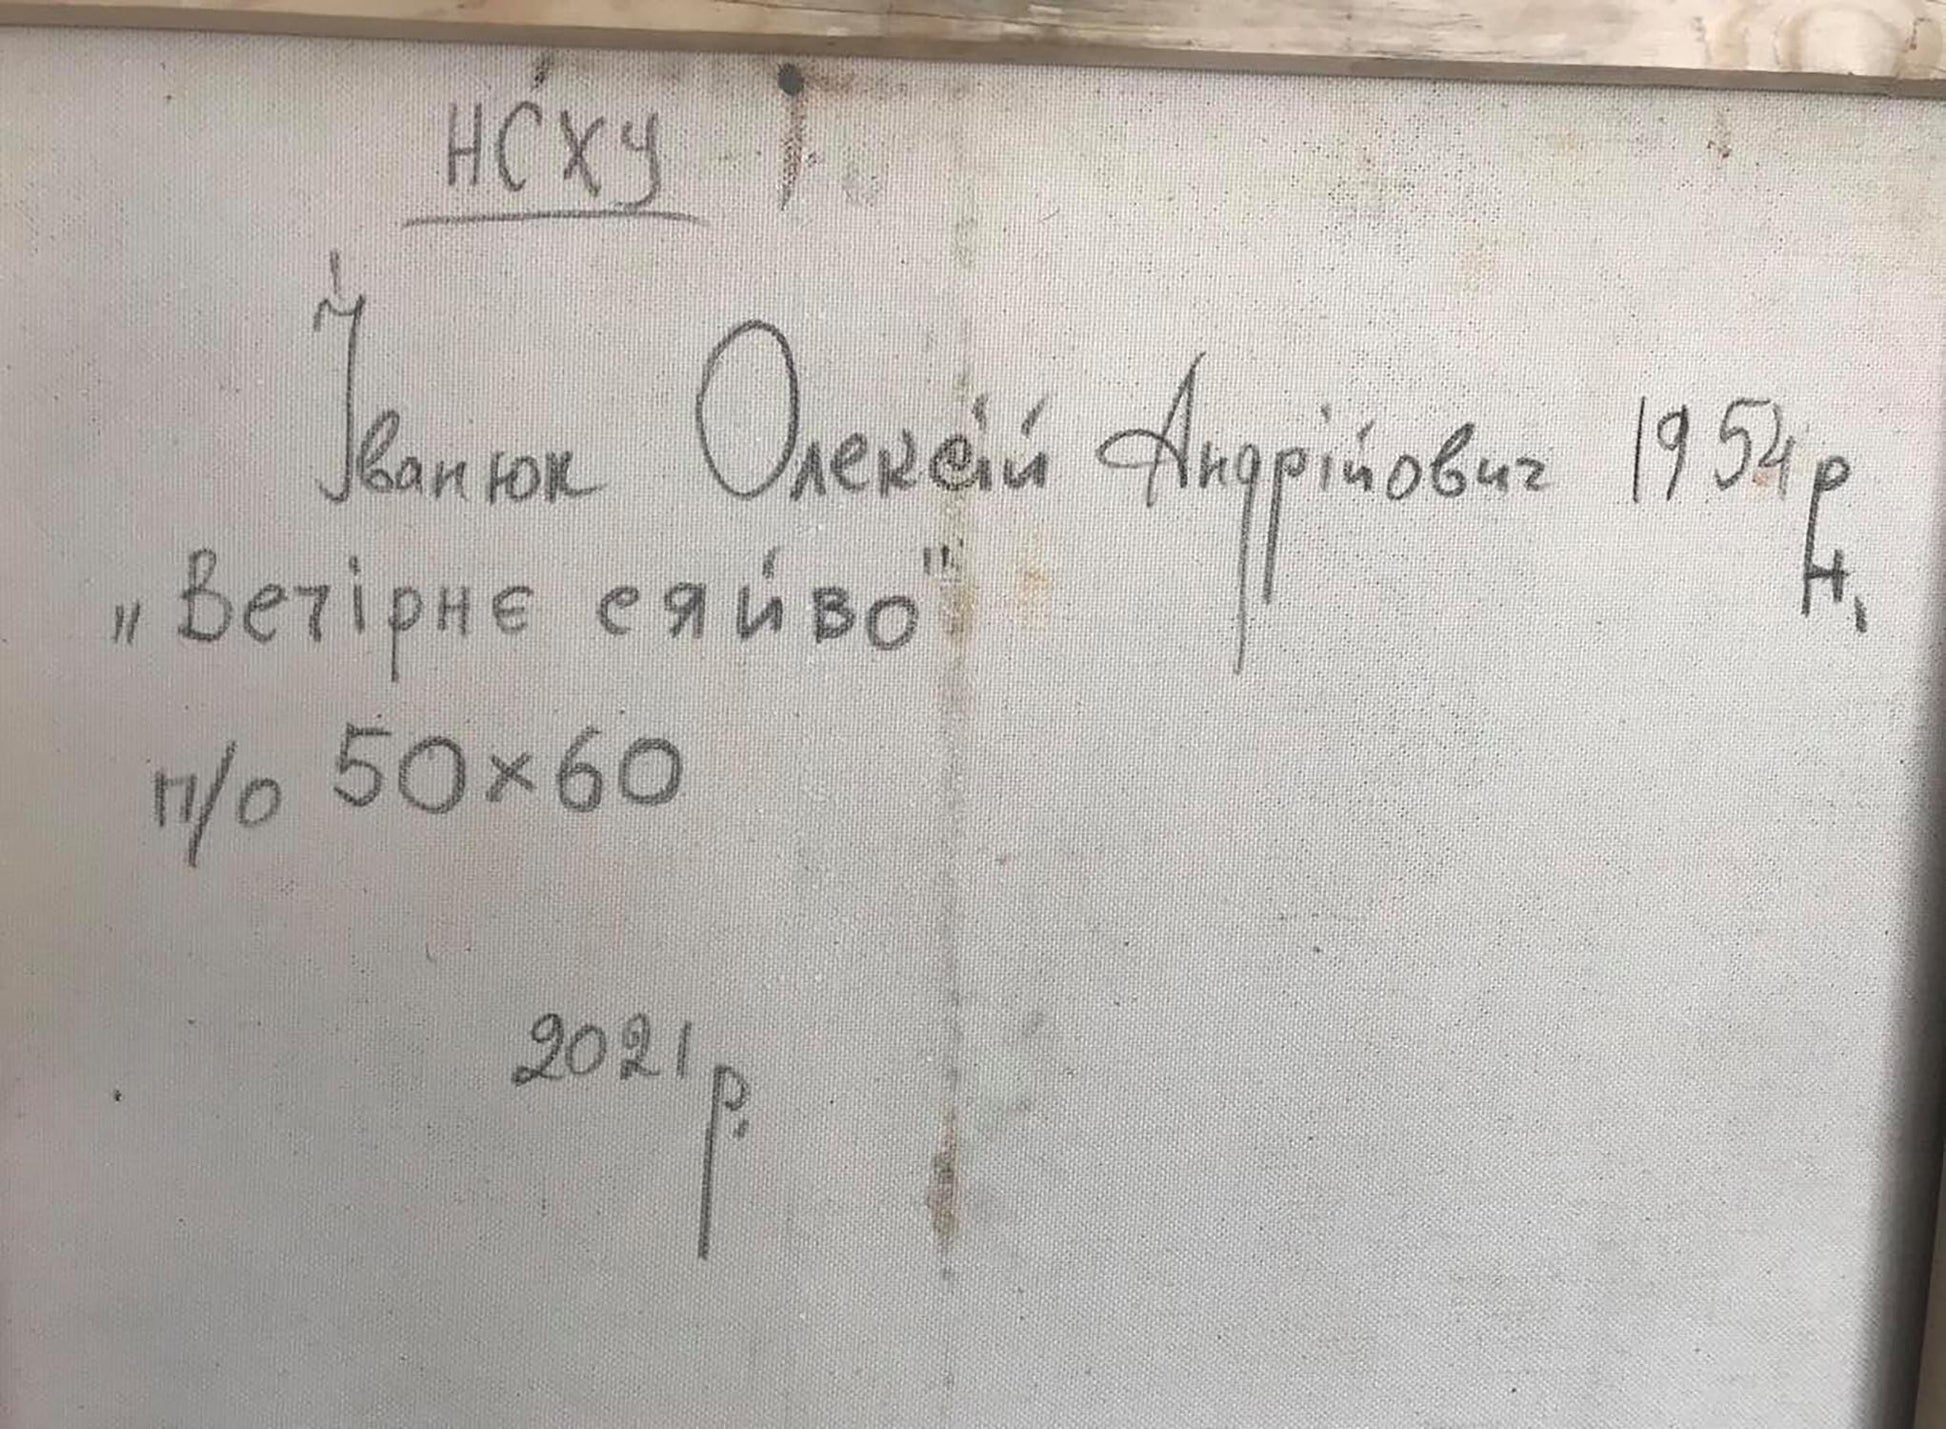 НСХУ
Іванюк Олексій Андрійович 1954р
н.
„Вечірнє сяйво"
п/о 50×60
2021р.